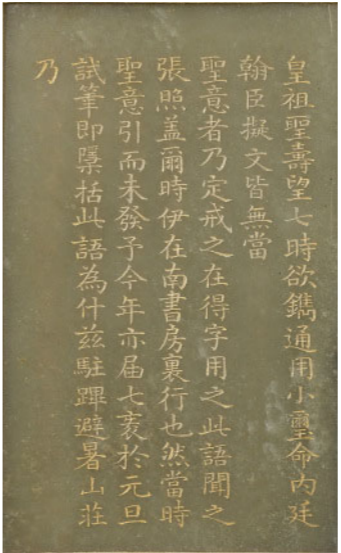 皇祖聖壽望七時欲鐫通用小璽命内廷
翰臣擬文皆無當
聖意者乃定戒之在得字用之此語聞之
張照盖爾時伊在南書房裏行也然當時
聖意引而未發予今年亦届七袠於元旦
試筆即隱括此語為什兹駐蹕避暑山莊
乃